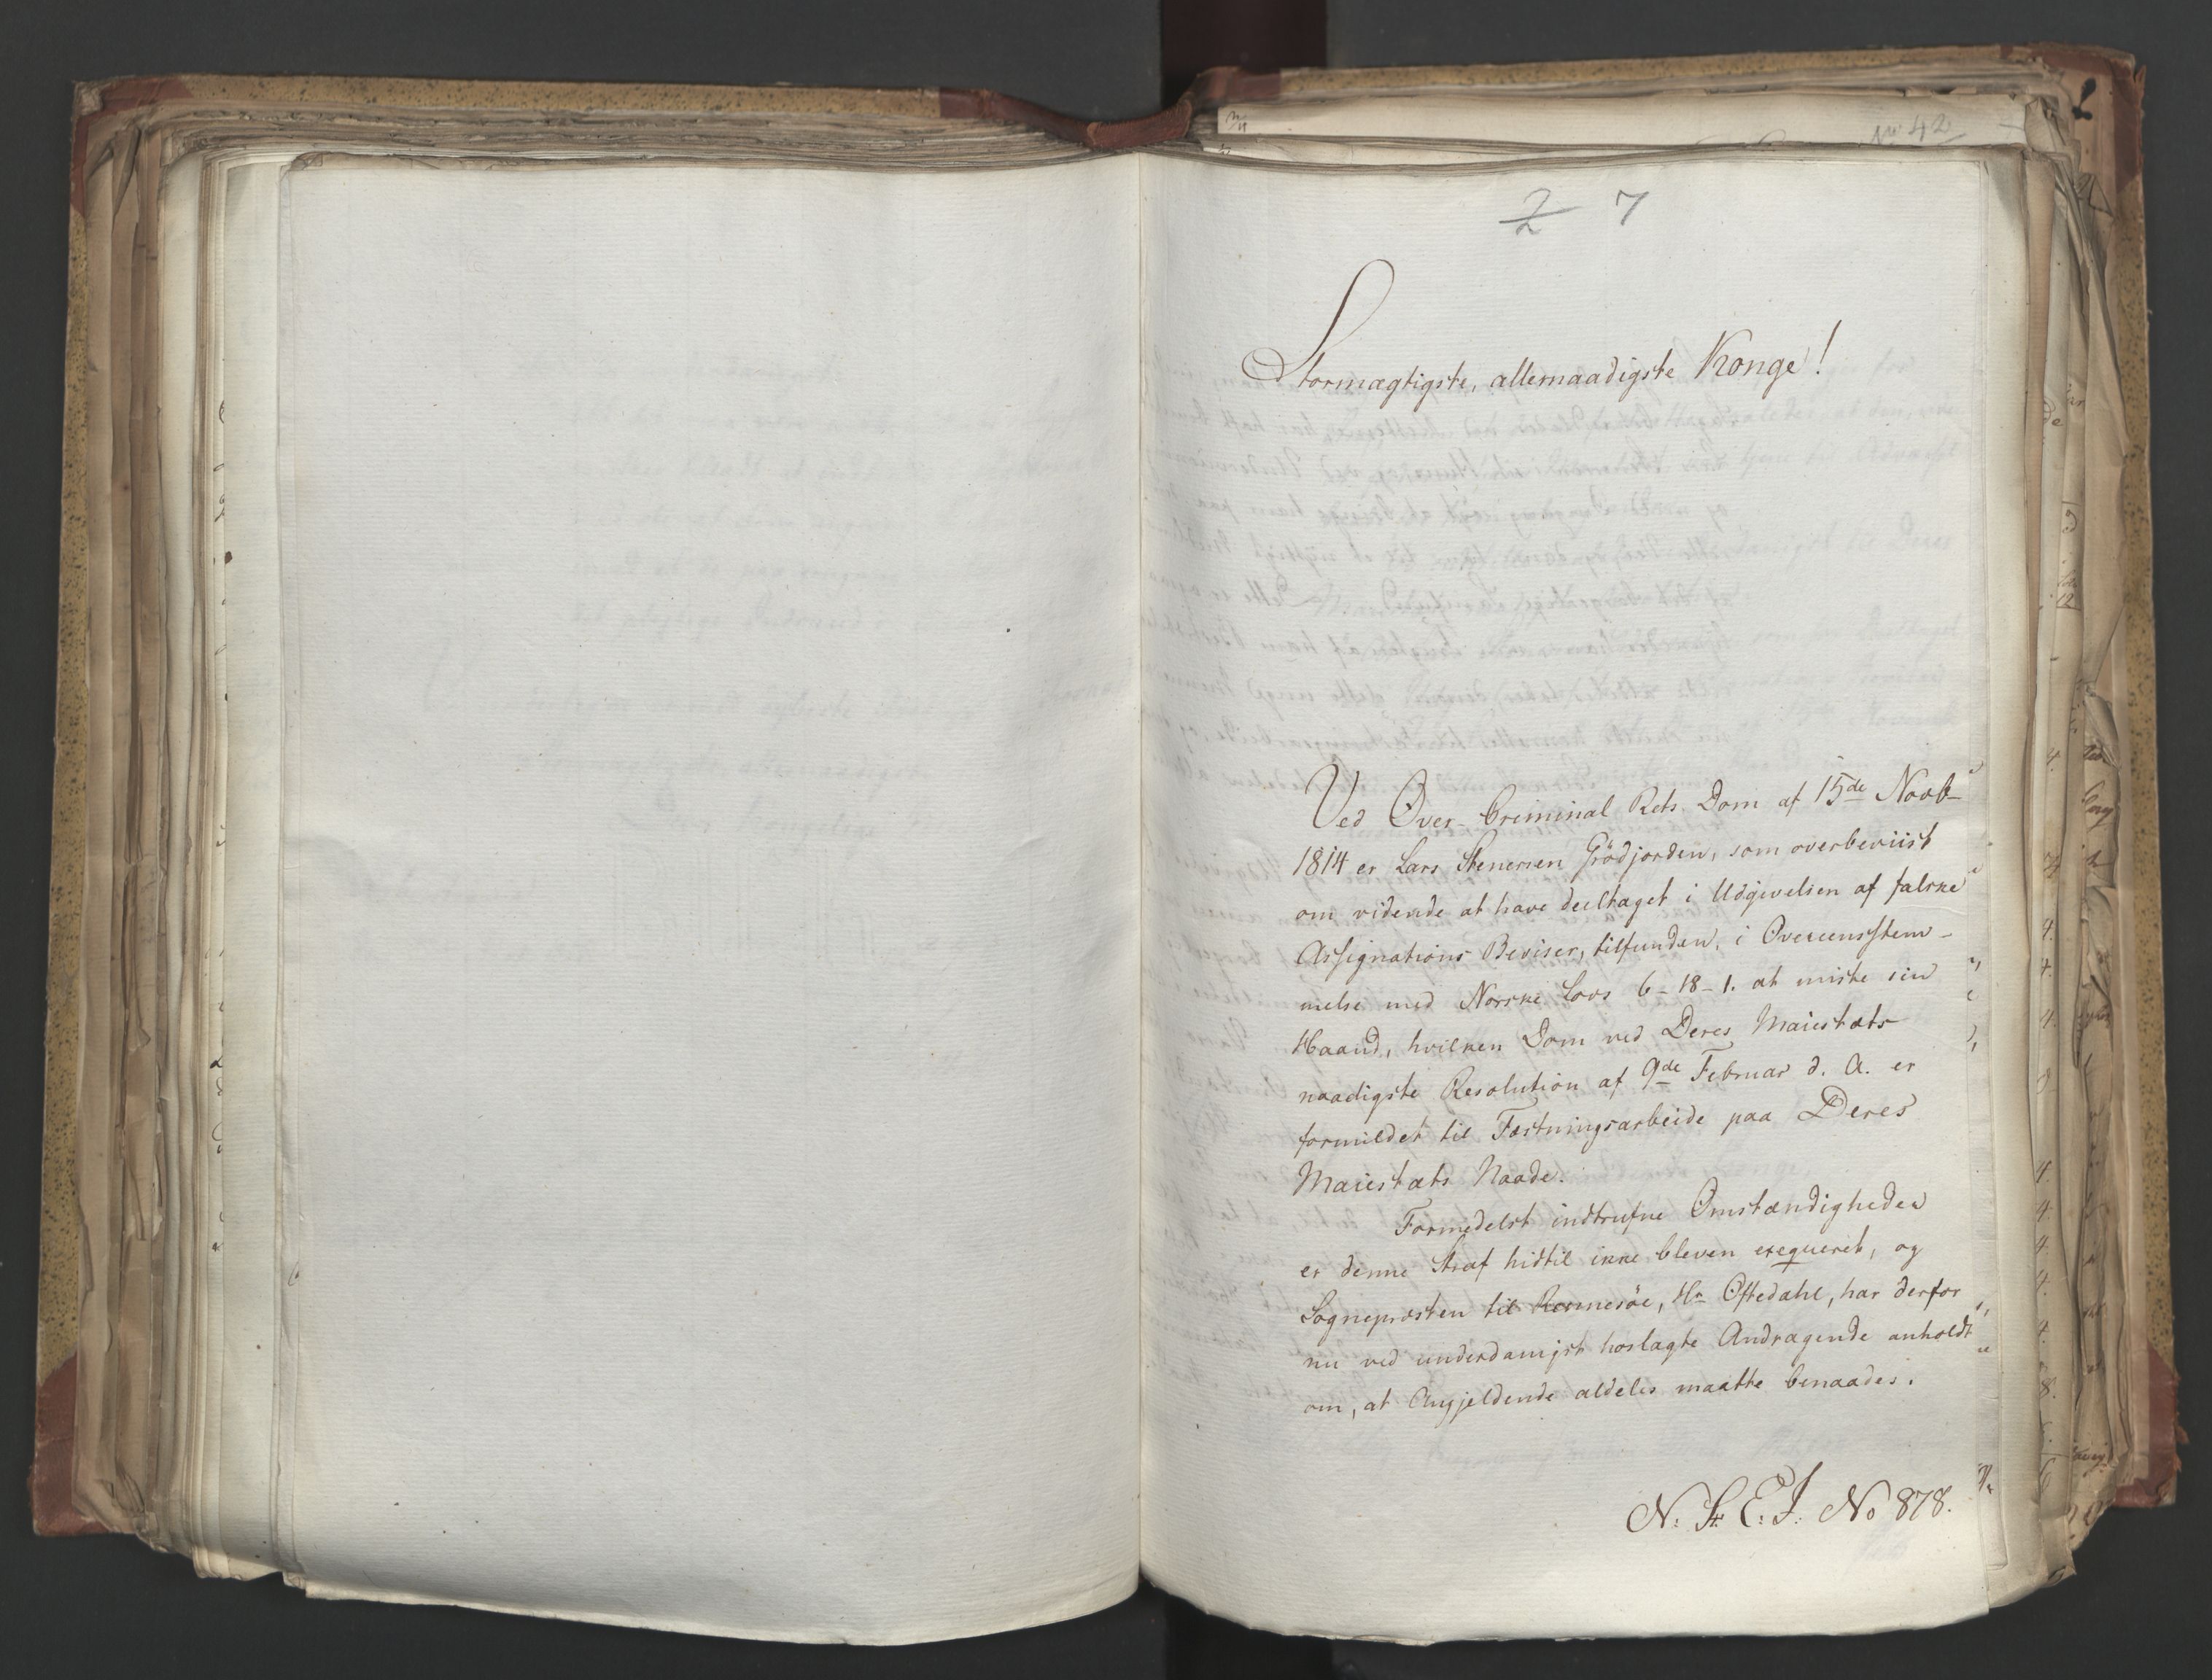 No 42
2 7
Stormægtigste, allernaadigste Konge!
Ved Over-Criminal Rets Dom af 15de Novb-
1814 er Lars Stenersen Grödjorden, som overbeviist
om vidende at have deeltaget i Udgivelsen af falske
Assignations Beviser, tilfunden, i Overeensstem-
melse med Norske Lovs 6-18-1. at miste sin
Haand, hvilken Dom ved Deres Maiestæts
naadigste Resolution af 9de Februar d. A. er
formildet til Fæstningsarbeide paa Deres
Maiestæts Naade.
Formedelst indtrufne Omstændigheder
er denne Straf hidtil ikke bleven exequeret, og
Sognepræsten til Rennesöe, Hr Oftedahl, har derfor
nu ved underdanigst hoslagte Andragende anholdt
om, at Angjeldende aldeles maatte benaades.
N. St. E. J. No 878.